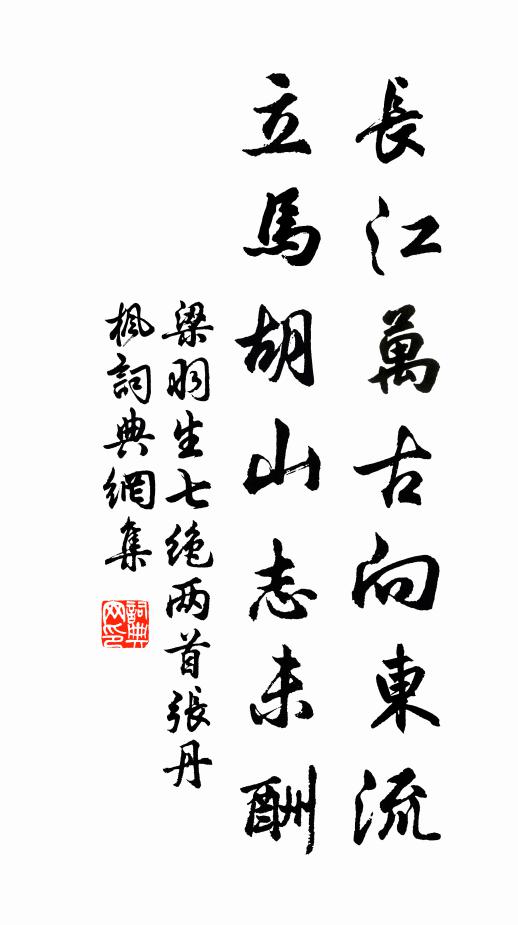 長江萬古向東流
立馬胡山志未酬
梁羽生七绝两首張丹
楓詞典網集
詞典
网印